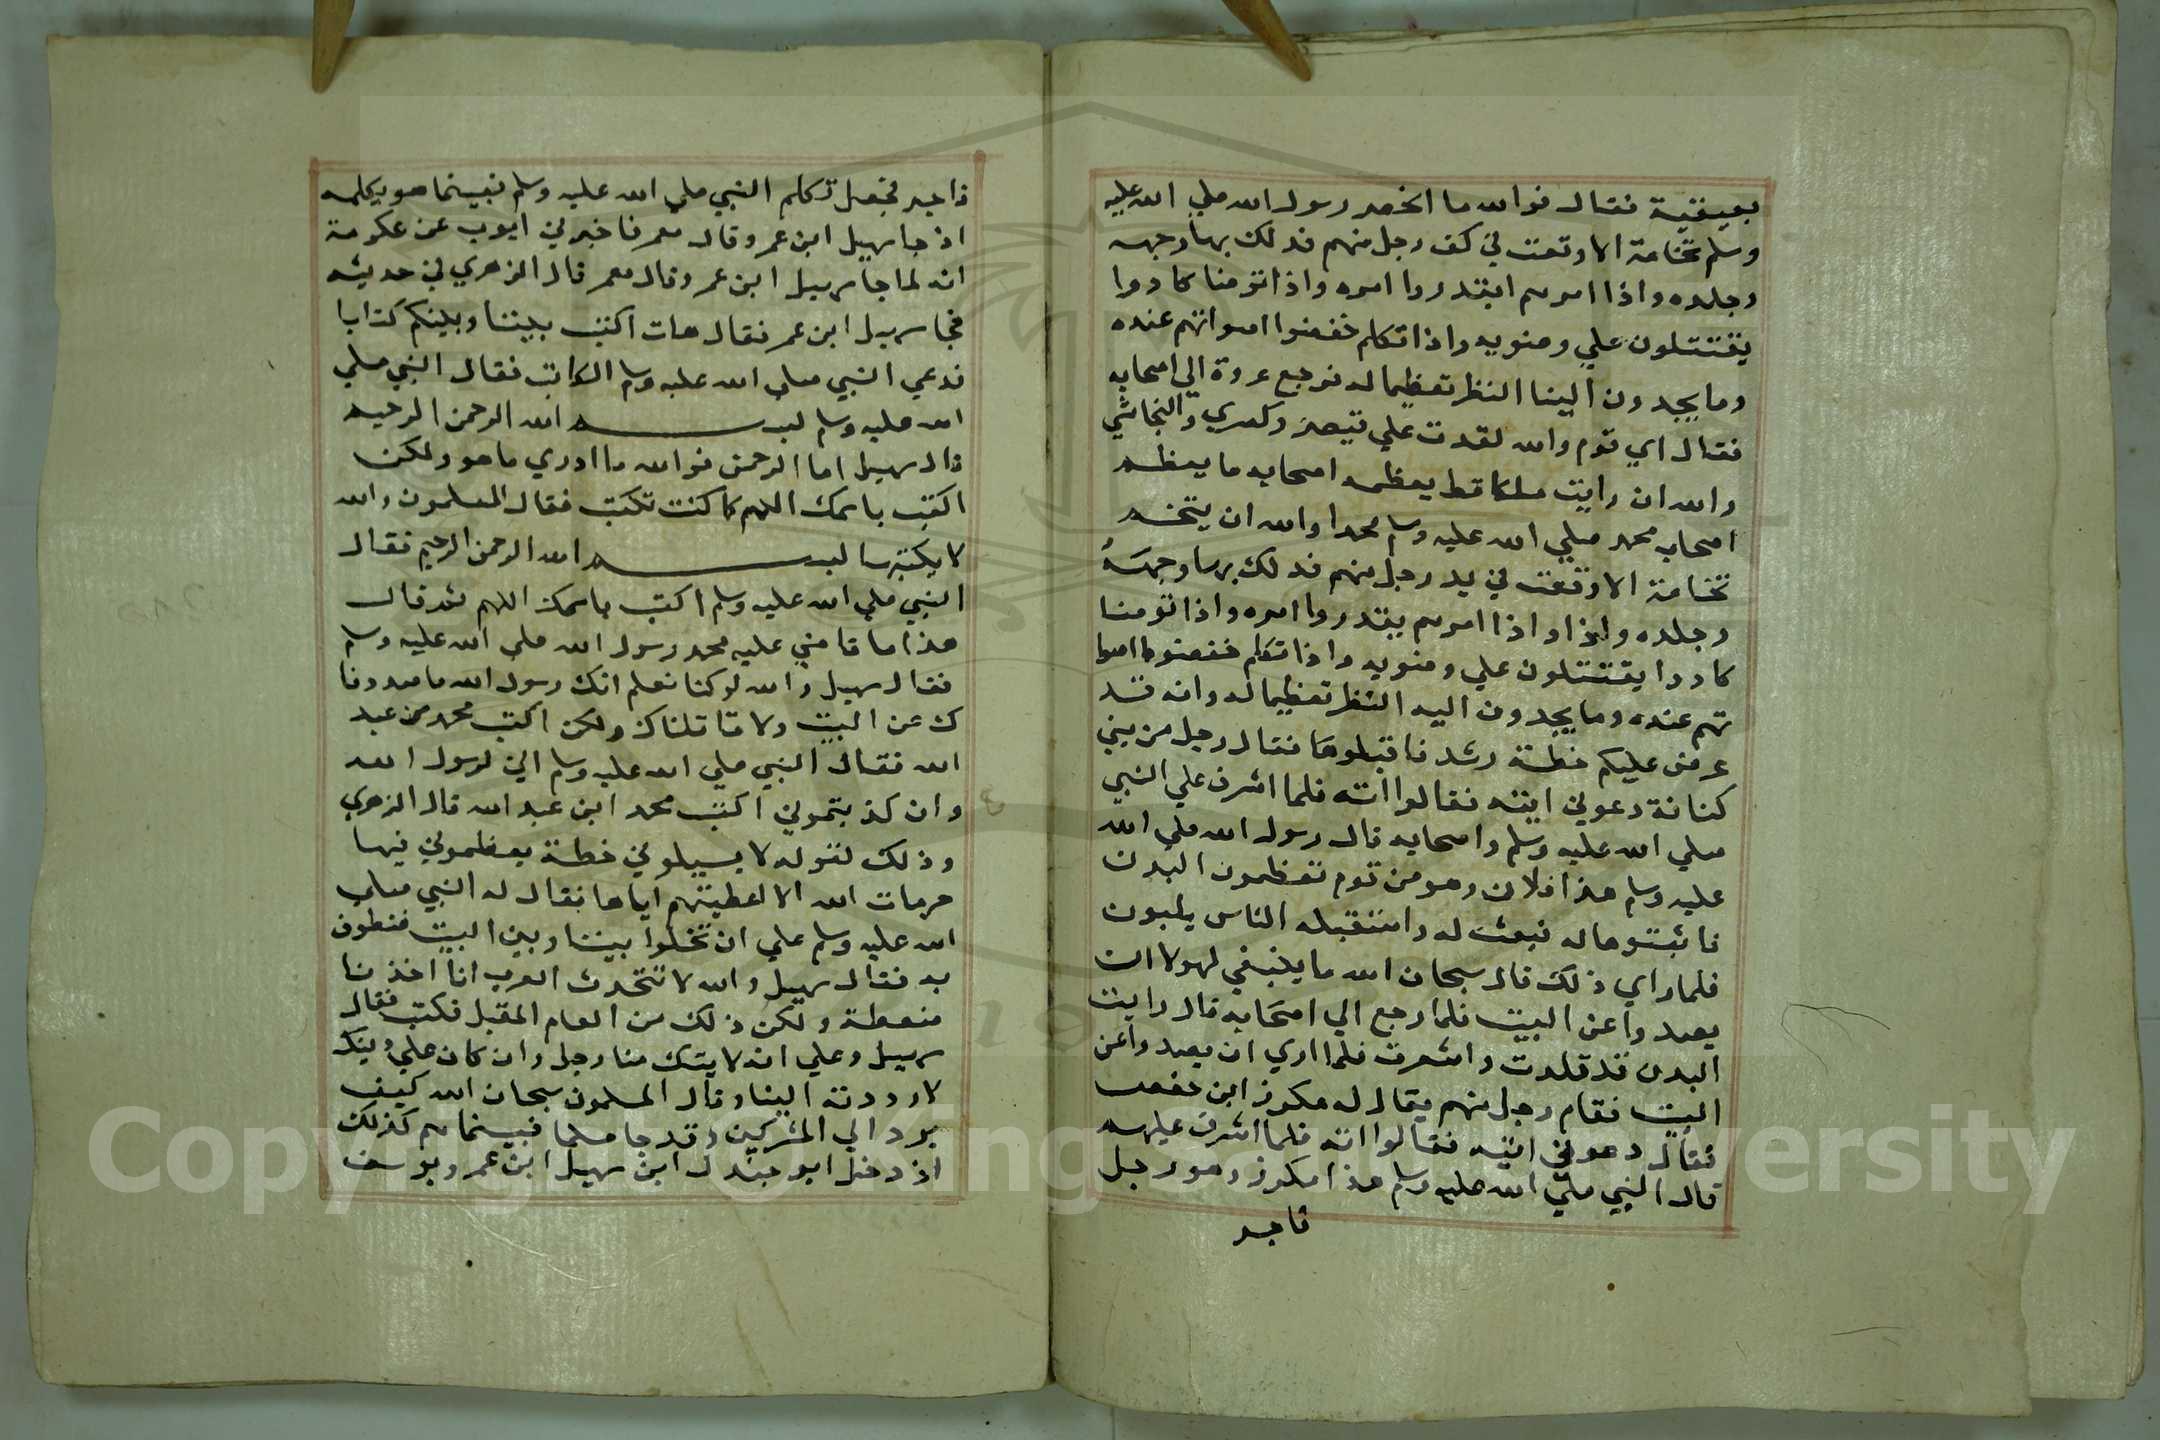 بعينيه فقال فوالله ما انخصر رسول الله صلي الله عليه
وسلم نخامة الا وقعت في كف رجل منهم فدلك بها وجهه
وجلده واذا امرهم ابتدروا امره واذا توضا كادوا
يقتتلون علي وضويه واذا تكلم خفضوا اصواتهم عنده
وما يجدون الينا النظر تعظيما له فرجع عروة الي اصحابه
فقال اي قوم والله لقدت علي قيصر وكسري والنجاشي
والله ان رايت ملكا قط يعظمه اصحابه ما يعظم
اصحاب محمد صلي الله عليه وسلم محمدا والله ان يتخنم
نخامة الا وقعت في يد رجل منهم فدلك بها وجهه
وجلده واذا واذا امرهم يبتدروا امره واذا توضا
كادوا يقتتلون علي وضويه واذا تكلم خفضوا اصوا
تهم عنده وما يجدون اليه النظر تعظيما له وانه قد
عرض عليكم خطة رشد فاقبلوها فقال رجل من بني
كنانة دعوني ايته فقالوا ائته فلما اشرف علي النبي
صلي الله عليه وسلم واصحابه قال رسول الله صلي الله
عليه وسلم هذا فلان وهو من قوم تعظمون البدن
فاثبتوها له فبعثت له واستقبله الناس يلبون
فلما راي ذلك قال سبحان الله ما ينبغي لهولا ان
يصدوا عن البيت فلما رجع الي اصحابه قال رايت
البدن قد قلدت واشعرت فلما اري ان يصدوا عن
البيت فقام رجل منهم يقال له مكرز ابن حفص
فقال دعوني ائتيه فقالوا ائته فلما اشرف عليهم
قال النبي صلي الله عليه وسلم هذا مكرز وهو رجل
فاجر
فاجر فجعل تكلم النبي صلي الله عليه وسلم فبينما هو يكلمه
اذ جا سهيل ابن عمرو قال معمر فاخبرني ايوب عن عكرمة
انه لما جا سهيل ابن عمرو قال معمر قال الزهري في حديثه
فجا سهيل ابن عمر فقال هات اكتب بيننا وبينكم كتابا
فدعي النبي صلي الله عليه وسلم الكاتب فقال النبي صلي
الله عليه وسلم بسم الله الرحمن الرحيم
قال سهيل اما الرحمن فوالله ما ادري ما هو ولكن
اكتب باسمك اللهم كما كنت تكتب فقال المسلمون والله
لا يكتبها الا بسم الله الرحمن الرحيم فقال
النبي صلي الله عليه وسلم اكتب باسمك اللهم ثم قال
هذا ما قاضي عليه محمد رسول الله صلي الله عليه وسلم
فقال سهيل والله لو كنا نعلم انك رسول الله ما صددنا
ك عن البيت ولا قاتلناك ولكن اكتب محمد من عبد
الله فقال النبي صلي الله عليه وسلم اني لرسول الله
وان كذبتموني اكتب محمد ابن عبد الله قال الزهري
وذلك لقوله لا يسيلوني خطة يعظموني فيها
حرمات الله الا اعطيتهم اياها فقال له النبي صلي
الله عليه وسلم علي ان تخلوا بيننا وبين البيت فنطوف
به فقال سهيل والله لا تتحدث العرب انا اخذنا
ضغطة ولكن ذلك من العام المقبل فكتب فقال
سهيل وعلي انه لا يتك منا رجل وان كان علي دينك
لا رددته الينا وقال المسلمون سبحان الله كيف
يرد الي المشركين وقد جا مسلما فبينما هم كذلك
اذ دخل ابو جندل ابن سهيل ابن عمرو يوسف
Copyright © King Saud University